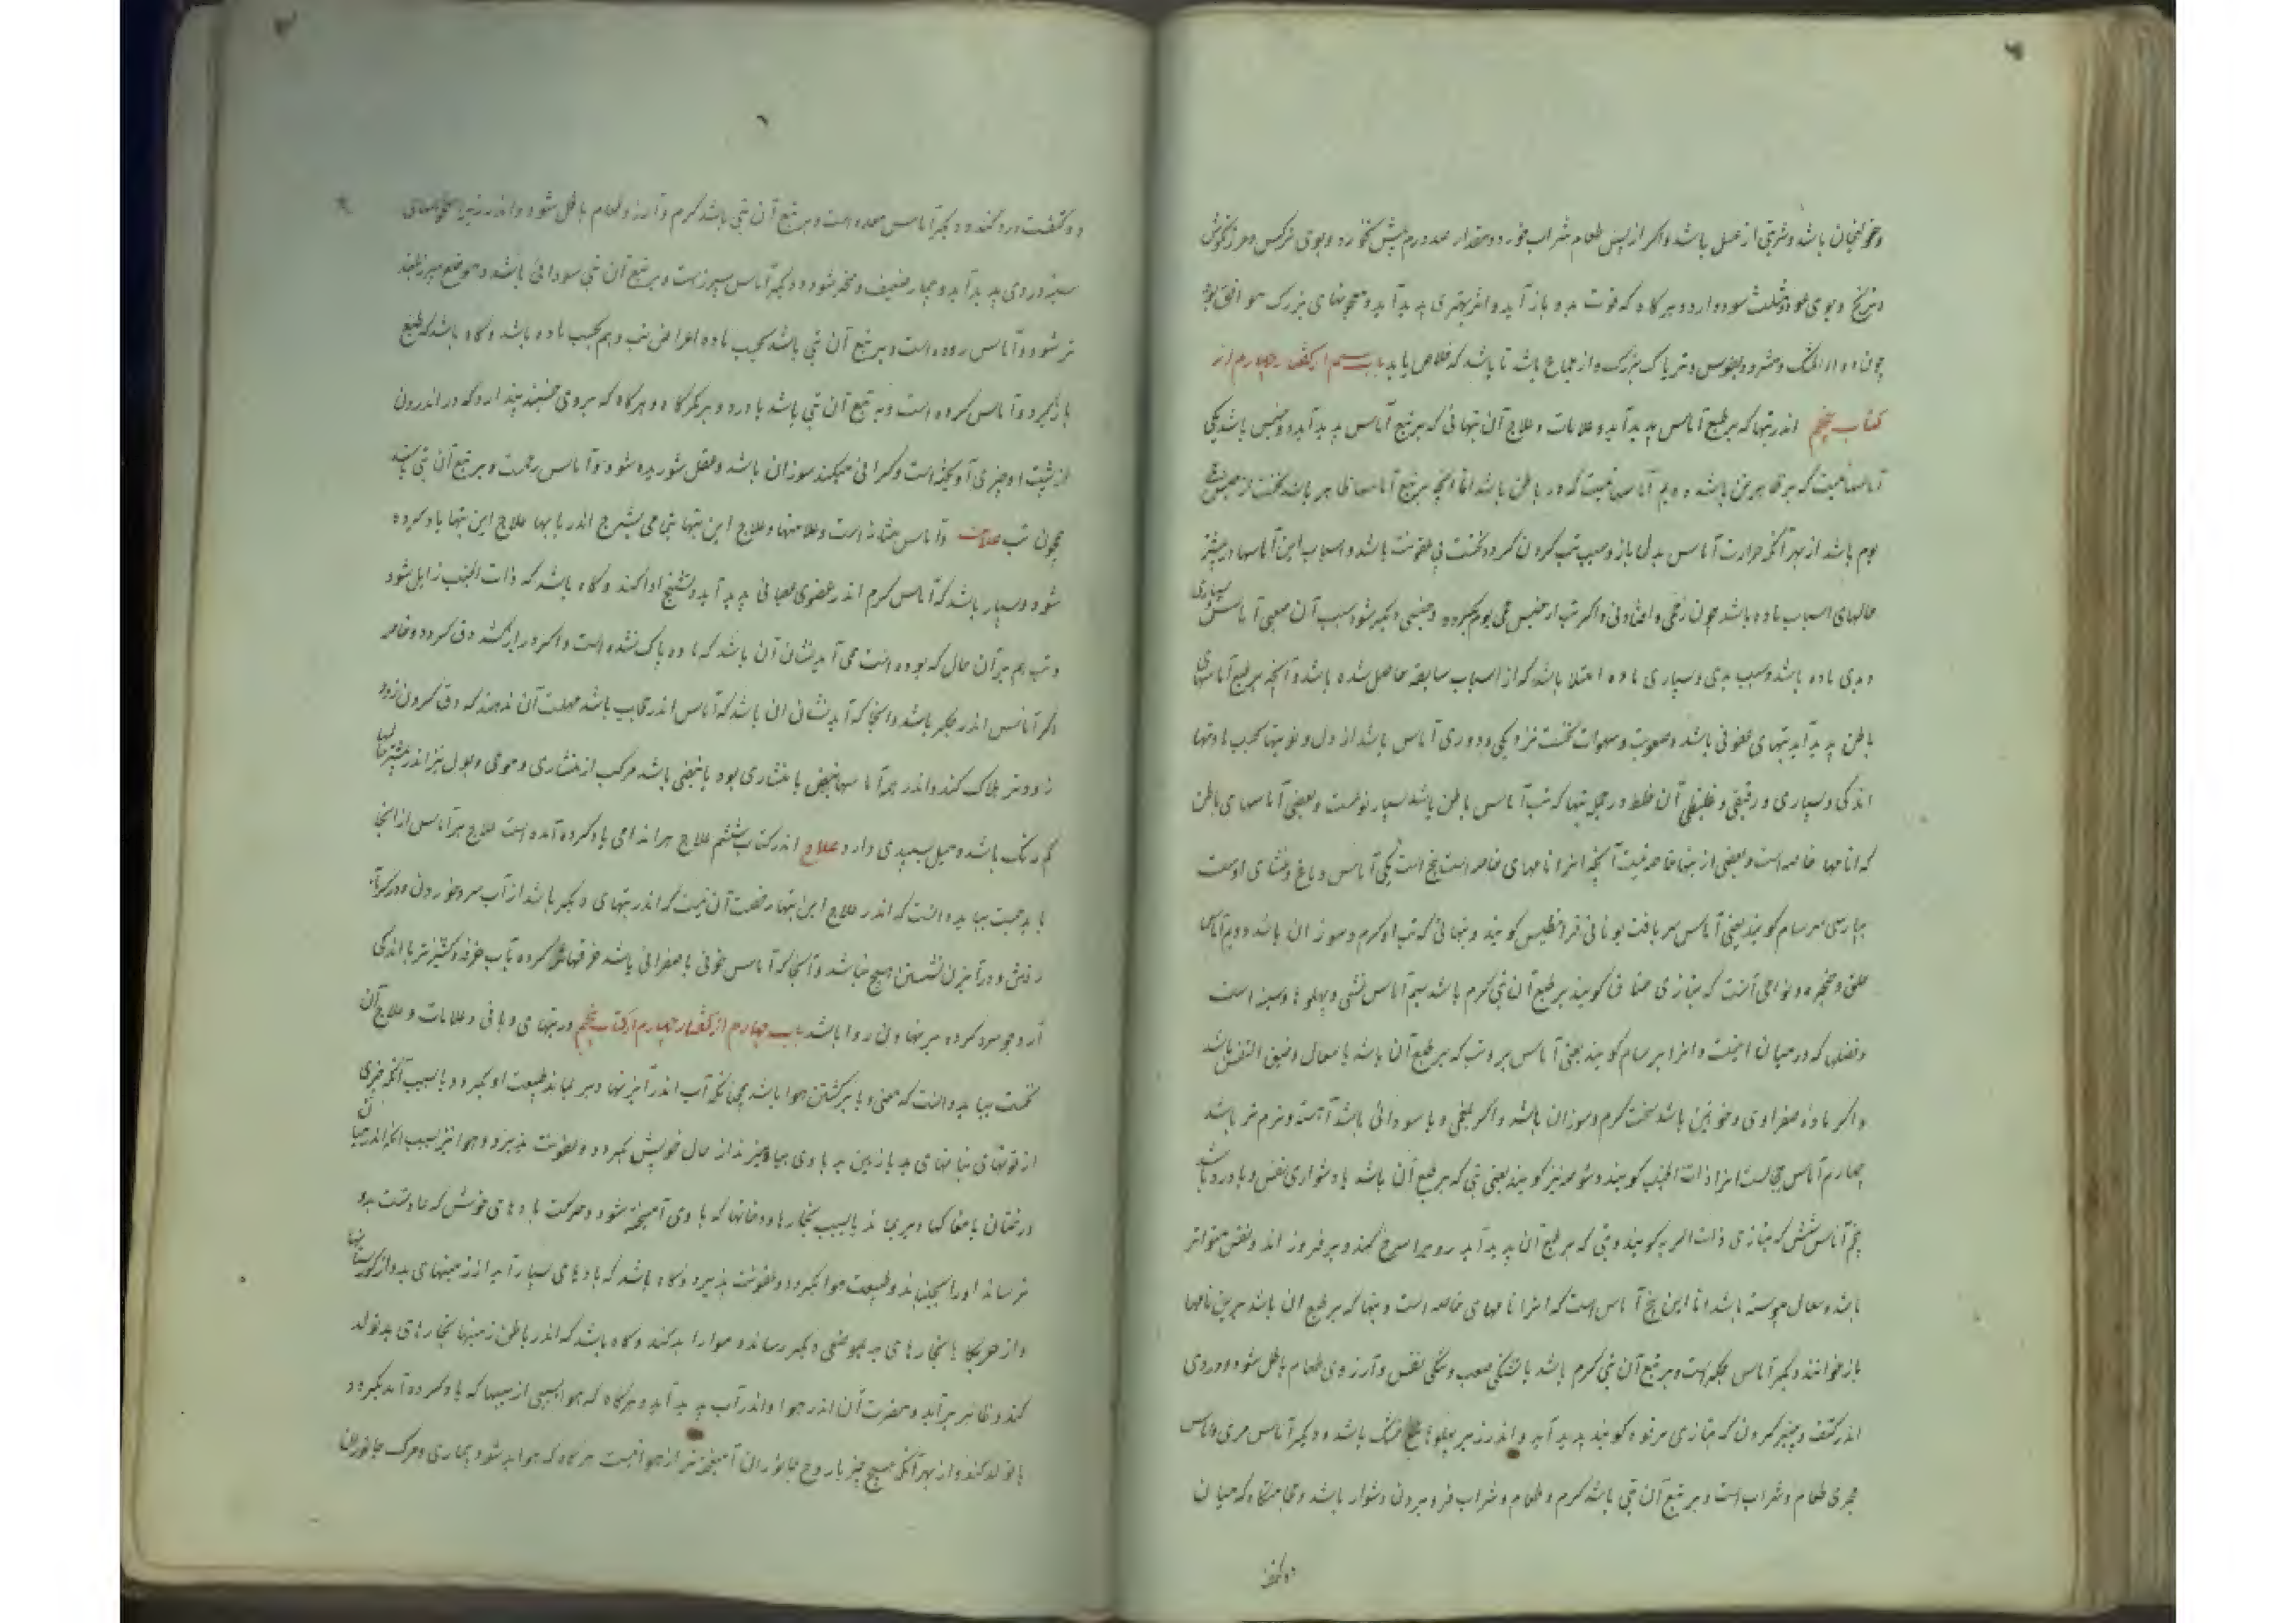 وخولنجان باشد و شربتی از عسل باشد و اگر از پس طعام شراب خورد و مقدار صد درم بیش نخورد و بوی نرگس و مرزنگوش
و ترنج و بوی عود و مثلث سود دارد و هرگاه که قوت بدو باز آید و اثر بهتری پدید آید و معجونهای بزرگ موافق بود
چون دواء المشک و مثرودیطوس و تریاک بزرگ و از جماع باشد تا باشد که خلاص یابد باب سیم از گفتار چهارم از
کتاب پنجم اندر تبها که بر طبع آماس پدید آید و علامات و علاج آن تبهائی که بر تبع آماس پدید آید دو جنس باشد یکی
آماسهائیست که بر ظاهر تن باشد دویم آماسهائیست که در باطن باشد اما آنچه بر تبع آماسها ظاهر باشد نخست از جنس حمی
یوم باشد از بهر آنکه حرارت آماس بدل باز و سبب تب گردن گردد نخست بی عفونت باشد و اسباب این آماسها در بیشتر
حالهای اسباب ماده باشد چون زخمی و افتادنی و اگر تب از جنس حمی یوم بگردد و جنسی دیگر شود سبب آن صعبی آماس و بسیاری
و بدی ماده باشد و سبب بدی و بسیاری ماده امتلا باشد که از اسباب سابقه حاصل شده باشد و آنچه بر طبع آماسهای
باطن پدید آید تبهای عفونی باشد و صعوبت و سهولت نخست نزدیکی و دوری آماس باشد از دل و نوبتها بحسب مادتها
اندکی و بسیاری و رقیقی و غلیظی آن خلط و در جمله تبها که تب آماس باطن باشد بسیار نوعست و بعضی آماسهای باطن
که انامها خاصه است و بعضی از تبها خاصه نیست آنچه انرا نامهای خاصه است پنج است یکی آماس دماغ و غشای اوست
بپارسی سرسام گویند یعنی آماس سر بافت یونانی قرانیطس گویند و تبهائی که تب او گرم و سوزان باشد دویم آماس
حلق و حنجره و نواحی آنست که بتازی خناق گویند بر طبع آن تبی گرم باشد سیم آماس غشی و پهلوها و سینه است
و عضلی که در میان اینست و انرا برسام گویند یعنی آماس بر و تب که بر طبع آن باشد با سعال و ضیق النفس باشد
و اگر ماده صفراوی و خونین باشد سخت گرم و سوزان باشد و اگر بلغمی و یا سودائی باشد آهسته و نرم تر باشد
چهارم آماس حجابست انرا ذات الجنب گویند و شوصه نیز گویند یعنی تبی که بر طبع آن باشد با دشواری نفس و با درد باشد
پنجم آماس شش که بتازی ذات الریه گویند و تبی که بر طبع آن پدید آید رویرا سرخ کند و برفروزاند و نفس متواتر
باشد و سعال پیوسته باشد اما این پنج آماس است که انرا نامهای خاصه است و تبها که بر طبع ان باشد برین نامها
باز خوانند و دیگر آماس جگر است و بر تبع آن تبی گرم باشد با تشنگی صعب و تنگی نفس و آرزوی طعام باطل شود و دردی
اندر کتف و چنبر گردن که بتازی ترقوه گویند پدید آید و اندر زیر پهلوها خلش باشد و دیگر آماس مری و آماس
مجری طعام و شراب است و بر تبع آن تبی باشد گرم و طعام و شراب فرو بردن دشوار باشد و بجایگاه که میان
دو کتف
دو کتفست درد کند و دیگر آماس معده است و بر تبع آن تبی باشد گرم و آرزو طعام باطل شود و اندر زیر استخوانهای
سینه دردی پدید آید و بیمار ضعیف و متحیر شود و دیگر آماس سپرزست و بر تبع آن تبی سودائی باشد و موضع سپرز بلند
تر شود و آماس روده است و بر تبع آن تبی باشد بحسب ماده اعراض تب و هم بحسب ماده باشد و گاه باشد که طبع
بازگیرد و آماس گرده است و بر تبع آن تبی باشد با درد و بر کمرگاه و هرگاه که بروی خسبد پندارد که در اندرون
از پشت او چیزی آویخته است و گرانی میکند سوزان باشد و عقل شوریده شود و آماس رحمست و بر تبع آن تبی باشد
چون تب علامت و آماس مثانه است و علامتها و علاج این تبها بجای می بشرح اندر بابها علاج این تبها یاد کرده
شود و بسیار باشد که آماس گرم اندر عضوی عصبانی پدید آید و تشنج ادا کند و گاه باشد که ذات الجنب زایل شود
و تب هم بر آن حال که بوده است می آید نشان آن باشد که ماده پاک نشده است و اگر دراز کشد دق گردد و خاصه
اگر آماس اندر جگر باشد و آنجا که آید نشان ان باشد که آماس اندر حجاب باشد مهلت آن ندهد که دق گردن زود
زودتر هلاک کند و اندر همه آماسها نبض یا منشاری بود یا نبضی باشد مرکب از منشاری و موجی و بول نیز اندر بیشتر حالها
کم رنگ باشد و میل بسپیدی دارد علاج اندر کتاب ششم علاج هر اندامی یاد کرده آمده است علاج هر آماس از انجا
باید جست بباید دانست که اندر علاج این تبها رخصت آن نیست که اندر تبهای دیگر باشد از آب سرد خوردن و در گرمابه
رفتن و در آبزن نشستن هیچ نباشد و آنجا که آماس خونی یا صفرائی باشد خرقها تر کرده بآب خرفه و گشنیز تر با اندکی
آرد جو سرد کرده بر نهادن روا باشد باب چهارم از گفتار چهارم از کتاب پنجم در تبهای وبائی و علامات و علاج آن
نخست بباید دانست که معنی وبا برگشتن هوا باشد چنانکه آب اندر آبزنها دیر بماند طبیعت او بگردد و یا بسبب آنکه چیزی
از قوتهای نباتهای بد یا زمین بد با وی بیامیزند از حال خویش بگردد و عفونت پذیرد و هوا نیز بسبب آنکه اندر میان
درختان یا مغاکها دیر بماند یا بسبب بخارها و دخانها که با وی آمیخته شود و حرکت بادهای خوش که عادتست بدو
نرساند او را بجنباند و طبیعت هوا بگردد و عفونت پذیرد و گاه باشد که بادهای بسیار آید از زمینهای بد و از گورستانها
و از حربگاها بخارهای بد بموضعی دیگر رساند و هوا را بد کند و گاه باشد که اندر باطن زمینها بخارهای بد تولد
کند و ظاهر برآید و مضرت آن اندر هوا و اندر آب پدید آید و هرگاه که هوا بسببی از سببها که یاد کرده آمد بگردد
یا تولد کند و از بهر آنکه هیچ چیز با روح جانوران آمیخته تر از هوا نیست هرگاه که هوا بد شود بیماری و مرگ جانوران